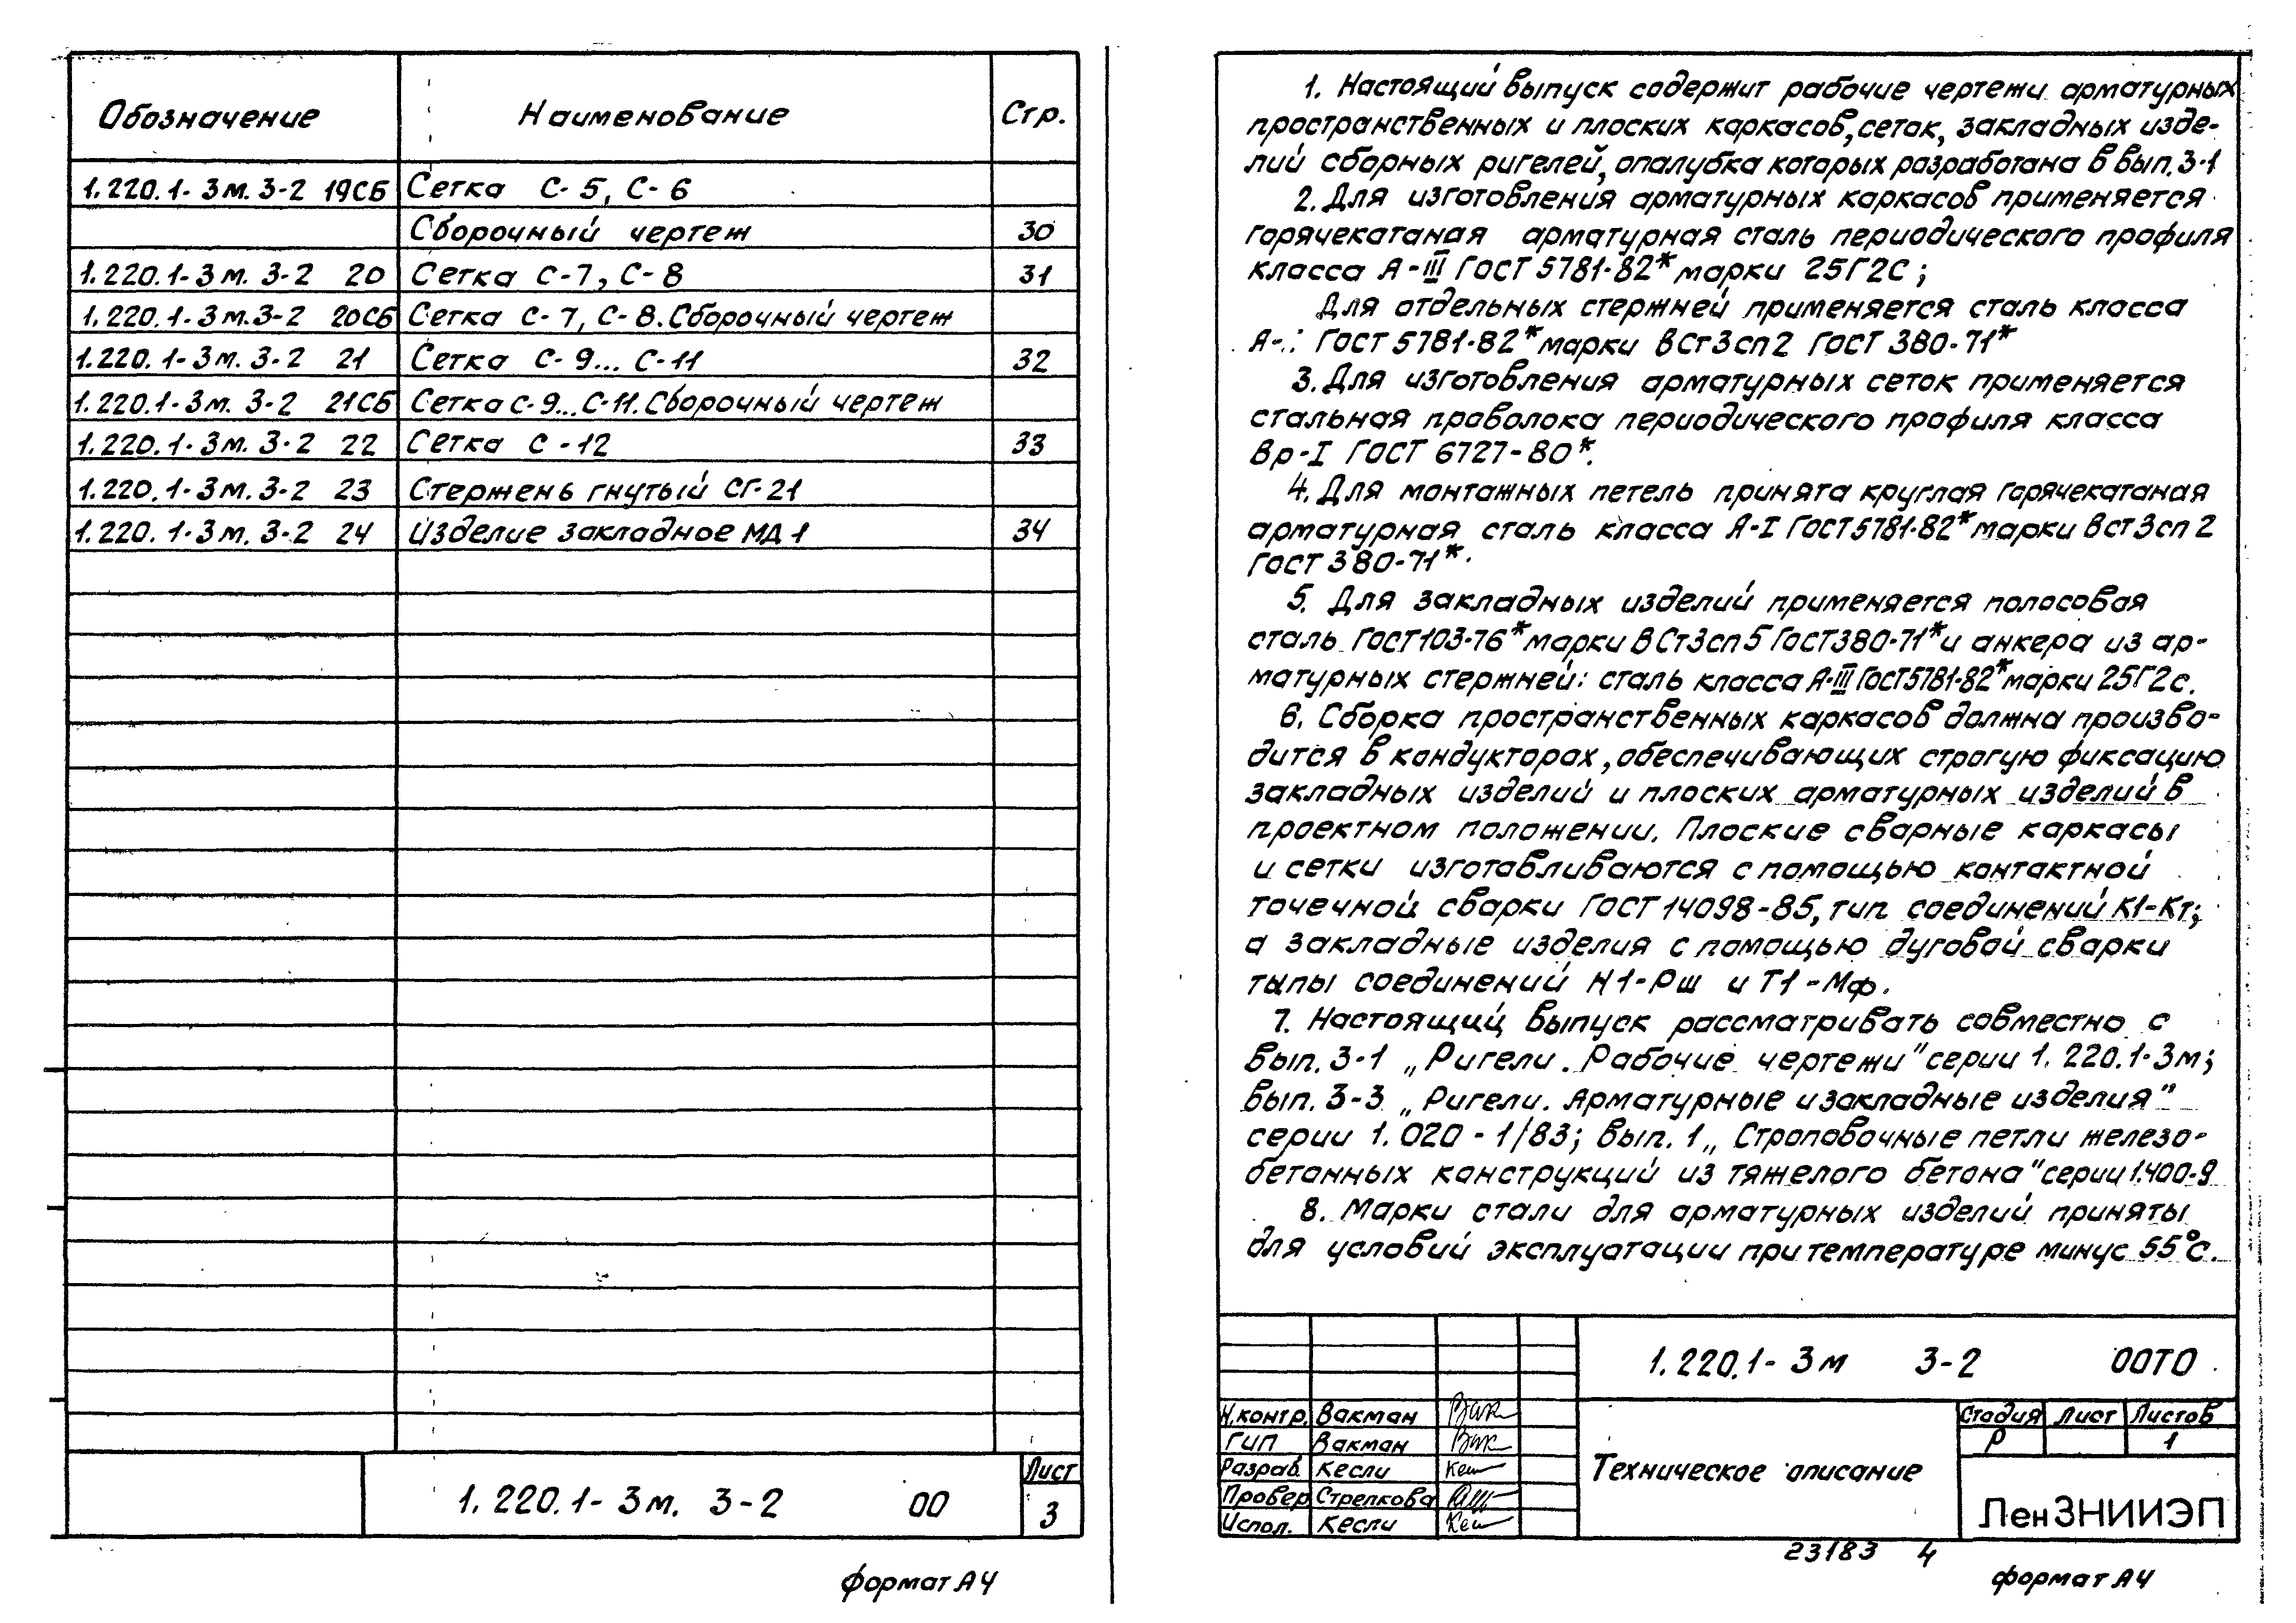 Обозначение Наименование Стр.
1.220.1-3м.3-2 19СБ Сетка С-5, С-6
Сборочный чертеж 30
1.220.1-3м.3-2 20 Сетка С-7, С-8 31
1.220.1-3м.3-2 20СБ Сетка С-7, С-8. Сборочный чертеж
1.220.1-3м.3-2 21 Сетка С-9... С-11 32
1.220.1-3м.3-2 21СБ Сетка С-9... С-11. Сборочный чертеж
1.220.1-3м.3-2 22 Сетка С-12 33
1.220.1-3м.3-2 23 Стержень гнутый СГ-21
1.220.1-3м.3-2 24 Изделие закладное МД1 34
1.220.1-3м. 3-2 00
Лист
3
формат А4
1. Настоящий выпуск содержит рабочие чертежи арматурных
пространственных и плоских каркасов, сеток, закладных изде-
лий сборных ригелей, опалубка которых разработана в вып. 3-1
2. Для изготовления арматурных каркасов применяется
горячекатаная арматурная сталь периодического профиля
класса А-III ГОСТ 5781-82* марки 25Г2С;
Для отдельных стержней применяется сталь класса
ГОСТ 5781-82* марки ВСт3сп2 ГОСТ 380-71*
3. Для изготовления арматурных сеток применяется
стальная проволока периодического профиля класса
Вр-I ГОСТ 6727-80*.
4. Для монтажных петель принята круглая горячекатаная
арматурная сталь класса А-I ГОСТ 5781-82* марки ВСт3сп2
ГОСТ 380-71*.
5. Для закладных изделий применяется полосовая
сталь ГОСТ 103-76* марки ВСт3сп5 ГОСТ 380-71* и анкера из ар-
матурных стержней: сталь класса А-III ГОСТ 5781-82* марки 25Г2С.
6. Сборка пространственных каркасов должна произво-
дится в кондукторах, обеспечивающих строгую фиксацию
закладных изделий и плоских арматурных изделий в
проектном положении. Плоские сварные каркасы
и сетки изготавливаются с помощью контактной
точечной сварки ГОСТ 14098-85, тип соединений К1-Кт;
а закладные изделия с помощью дуговой сварки
типы соединений Н1-Рш и Т1-Мф.
7. Настоящий выпуск рассматривать совместно с
вып. 3-1 „Ригели. Рабочие чертежи" серии 1.220.1-3м;
вып. 3-3 „Ригели. Арматурные и закладные изделия"
серии 1.020-1/83; вып. 1 „Строповочные петли железо-
бетонных конструкций из тяжелого бетона" серии 1.400-9
8. Марки стали для арматурных изделий приняты
для условий эксплуатации при температуре минус 55°С.
1.220.1-3м 3-2 00ТО
Н.контр. Вакман Вак
ГИП Вакман Вак
Разраб. Кесли Кеш
Провер Стрелкова
Испол. Кесли Кеш
Техническое описание
Стадия Лист Листов
Р 1
ЛенЗНИИЭП
23183 4
формат А4